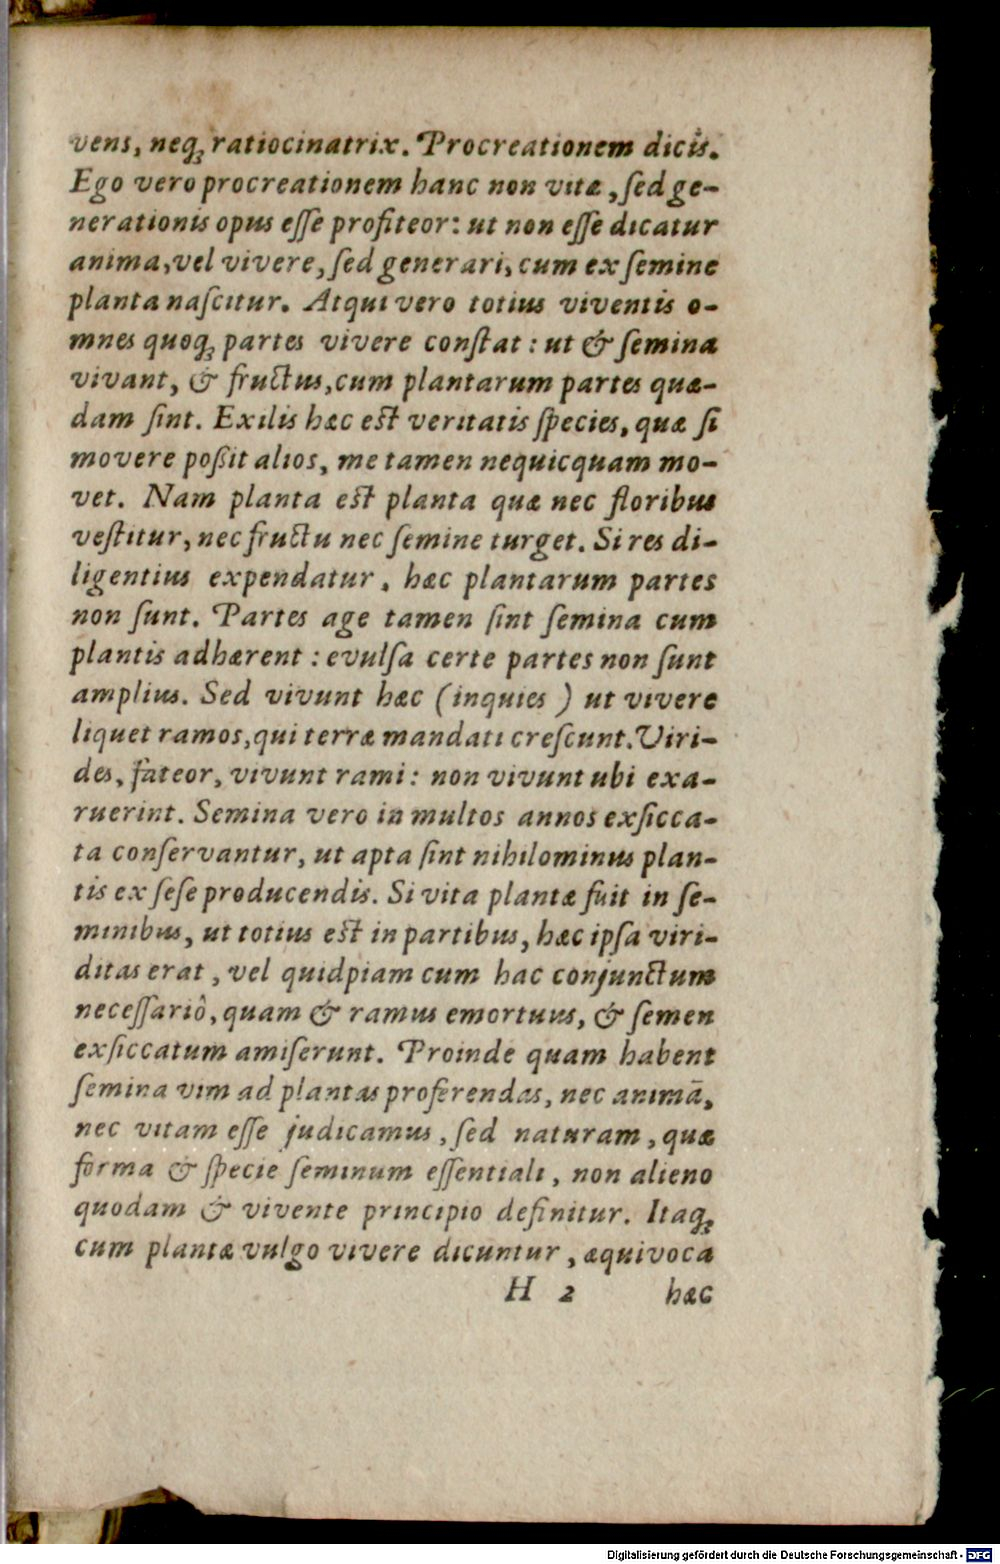 vens, neq; ratiocinatrix. Procreationem dicis.
Ego vero procreationem hanc non vitæ, ſed ge-
nerationis opus eſſe profiteor: ut non eſſe dicatur
anima, vel vivere, ſed generari, cum ex ſemine
planta naſcitur. Atqui vero totius viventis o-
mnes quoq; partes vivere conſtat: ut & ſemina
vivant, & fructus, cum plantarum partes quæ-
dam ſint. Exilis hæc eſt veritatis ſpecies, quæ ſi
movere poßit alios, me tamen nequicquam mo-
vet. Nam planta eſt planta quæ nec floribus
veſtitur, nec fructu nec ſemine turget. Si res di-
ligentius expendatur, hæc plantarum partes
non ſunt. Partes age tamen ſint ſemina cum
plantis adhærent: evulſa certe partes non ſunt
amplius. Sed vivunt hæc (inquies) ut vivere
liquet ramos, qui terræ mandati creſcunt. Viri-
des, fateor, vivunt rami: non vivunt ubi exa-
ruerint. Semina vero in multos annos exſicca-
ta conſervantur, ut apta ſint nihilominus plan-
tis ex ſeſe producendis. Si vita plantæ fuit in ſe-
minibus, ut totius eſt in partibus, hæc ipſa viri-
ditas erat, vel quidpiam cum hac conjunctum
neceſſariô, quam & ramus emortuus, & ſemen
exſiccatum amiſerunt. Proinde quam habent
ſemina vim ad plantas proferendas, nec animā,
nec vitam eſſe judicamus, ſed naturam, quæ
forma & ſpecie ſeminum eſſentiali, non alieno
quodam & vivente principio definitur. Itaq;
cum plantæ vulgo vivere dicuntur, æquivoca
H 2 hæc
Digitalisierung gefördert durch die Deutsche Forschungsgemeinschaft - DFG